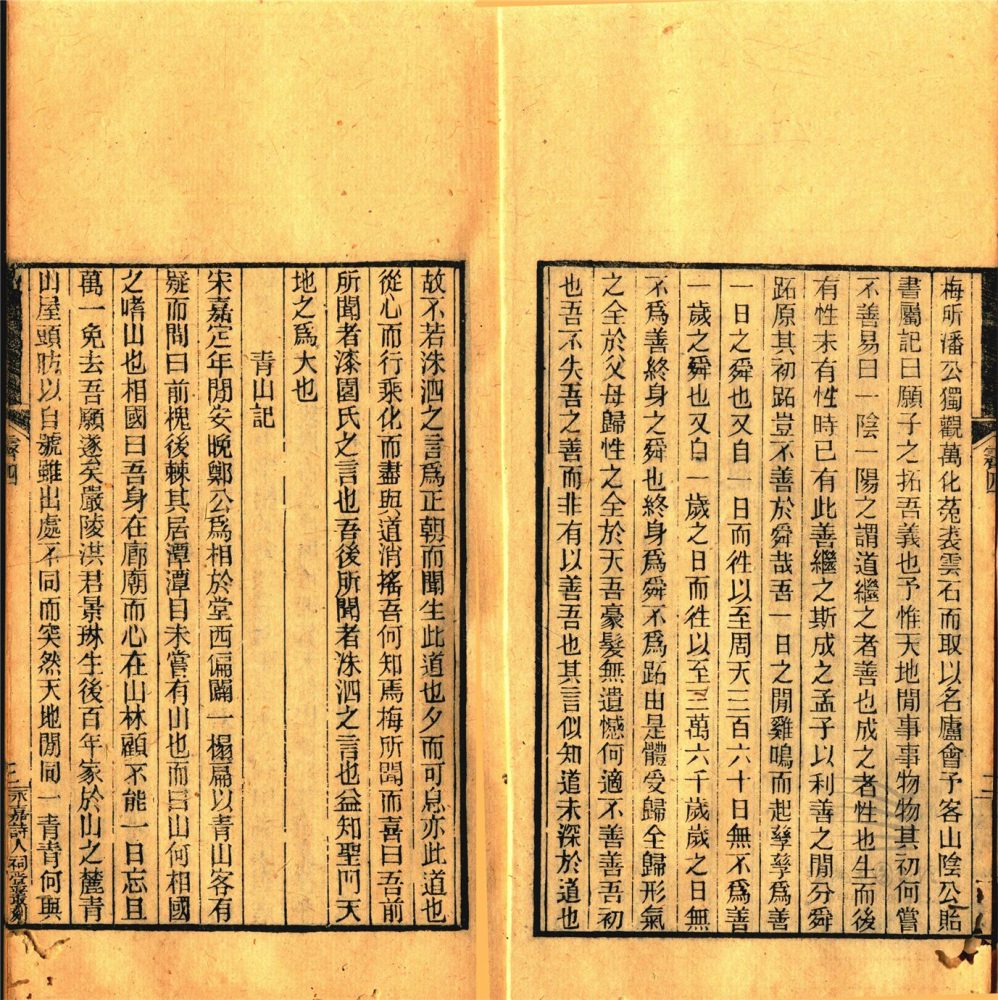 梅所潘公獨觀萬化菟裘雲石而取以名廬會予客山陰公貽
書屬記曰願子之拓吾義也予惟天地閒事事物物其初何嘗
不善易曰一陰一陽之謂道繼之者善也成之者性也生而後
有性未有性時已有此善繼之斯成之孟子以利善之閒分舜
跖原其初跖豈不善於舜哉吾一日之閒雞鳴而起孳孳為善
一日之舜也又自一日而徃以至周天三百六十日無不為善
一歲之舜也又自一歲之日而徃以至三萬六千歲歲之日無
不為善終身之舜也終身為舜不為跖由是體受歸全歸形氣
之全於父母歸性之全於天吾豪髮無遺憾何適不善善吾初
也吾不失吾之善而非有以善吾也其言似知道未深於道也
卷四
二
故不若洙泗之言為正朝而聞生此道也夕而可息亦此道也
從心而行乘化而盡與道消搖吾何知焉梅所聞而喜曰吾前
所聞者漆園氏之言也吾後所聞者洙泗之言也益知聖門天
地之為大也
青山記
宋嘉定年閒安晚鄭公為相於堂西偏闢一榻扁以青山客有
疑而問曰前槐後棘其居潭潭目未嘗有山也而曰山何相國
之嗜山也相國曰吾身在廊廟而心在山林顧不能一日忘且
萬一免去吾願遂矣嚴陵洪君景琳生後百年家於山之麓青
山屋頭故以自號雖出處不同而突然天地閒同一青青何與
卷四
三
永嘉詩人祠堂叢刻